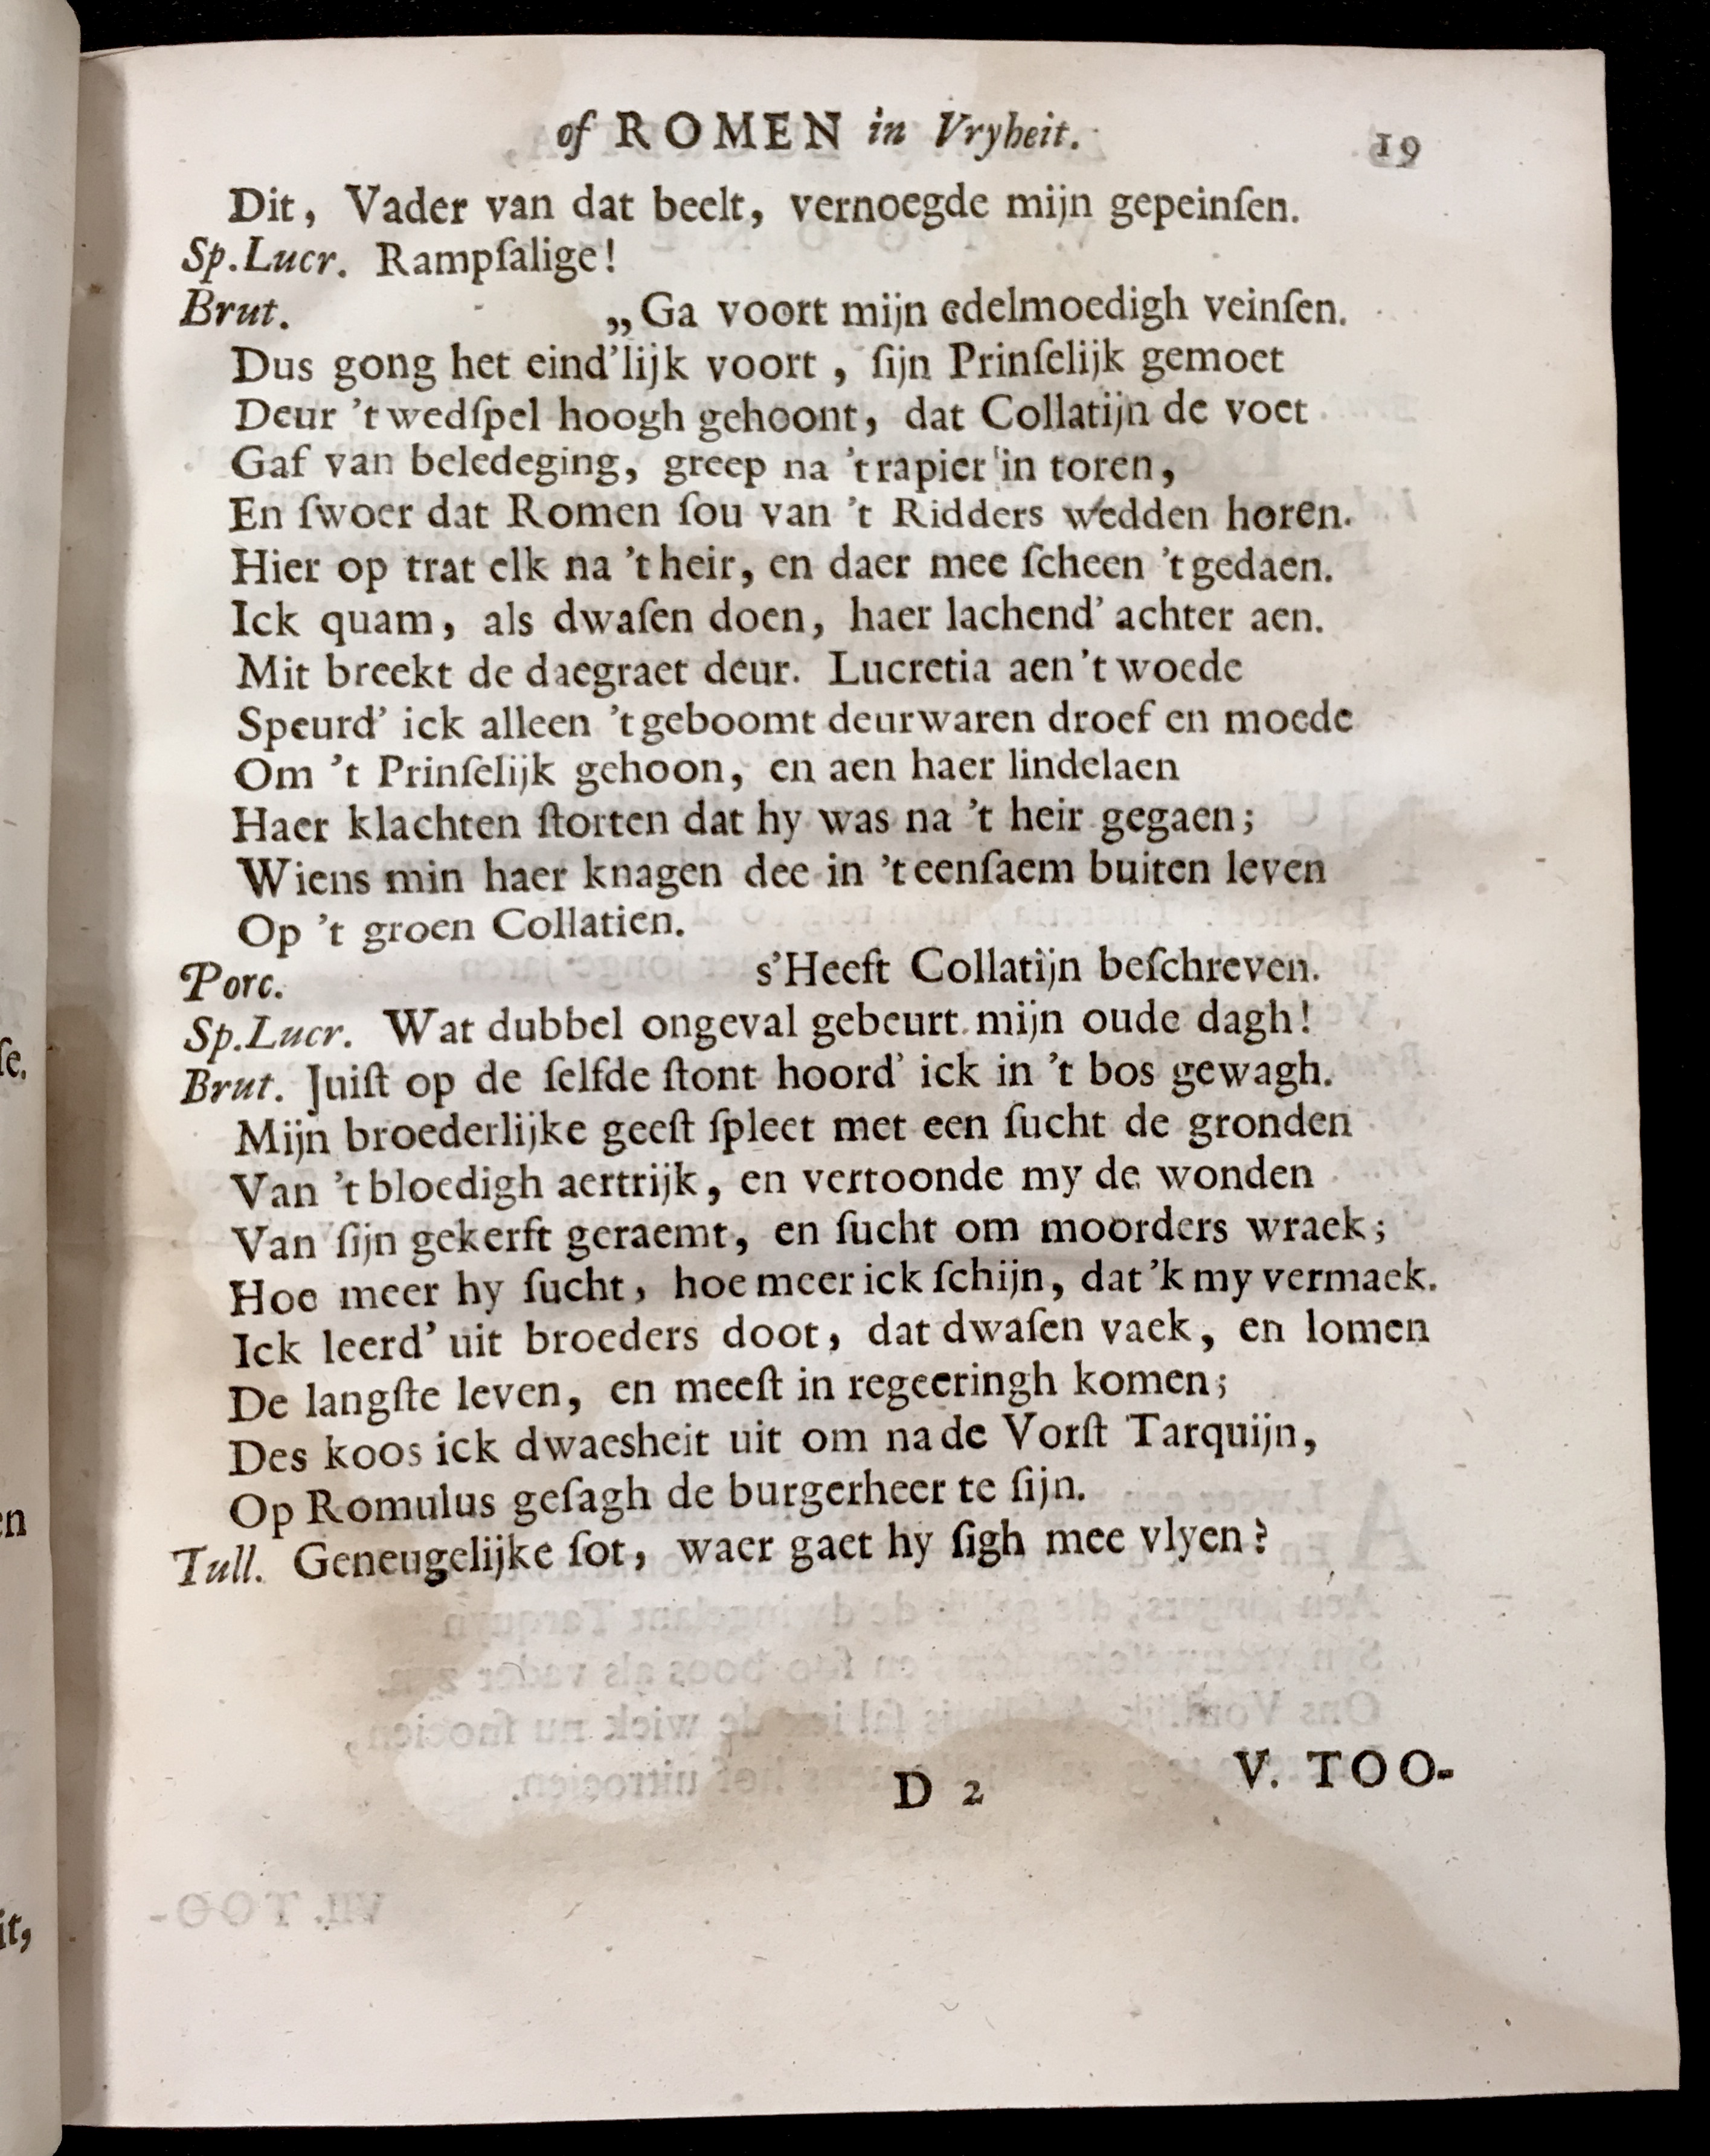 of ROMEN in Vryheit. 19
Dit, Vader van dat beelt, vernoegde mijn gepeinſen.
Sp.Lucr. Rampſalige!
Brut. „Ga voort mijn edelmoedigh veinſen.
Dus gong het eind'lijk voort, ſijn Prinſelijk gemoet
Deur 't wedſpel hoogh gehoont, dat Collatijn de voet
Gaf van beledeging, greep na 't rapier in toren,
En ſwoer dat Romen ſou van 't Ridders wedden horen.
Hier op trat elk na 't heir, en daer mee ſcheen 't gedaen.
Ick quam, als dwaſen doen, haer lachend' achter aen.
Mit breekt de daegraet deur. Lucretia aen 't woede
Speurd' ick alleen 't geboomt deurwaren droef en moede
Om 't Prinſelijk gehoon, en aen haer lindelaen
Haer klachten ſtorten dat hy was na 't heir gegaen;
Wiens min haer knagen dee in 't eenſaem buiten leven
Op 't groen Collatien.
Porc. s'Heeft Collatijn beſchreven.
Sp.Lucr. Wat dubbel ongeval gebeurt mijn oude dagh!
Brut. Juiſt op de ſelfde ſtont hoord' ick in 't bos gewagh.
Mijn broederlijke geeſt ſpleet met een ſucht de gronden
Van 't bloedigh aertrijk, en vertoonde my de wonden
Van ſijn gekerft geraemt, en ſucht om moorders wraek;
Hoe meer hy ſucht, hoe meer ick ſchijn, dat 'k my vermaek.
Ick leerd' uit broeders doot, dat dwaſen vaek, en lomen
De langſte leven, en meeſt in regeeringh komen;
Des koos ick dwaesheit uit om na de Vorſt Tarquijn,
Op Romulus geſagh de burgerheer te ſijn.
Tull. Geneugelijke ſot, waer gaet hy ſigh mee vlyen?
D 2 V. TOO-
ſe.
en
it,